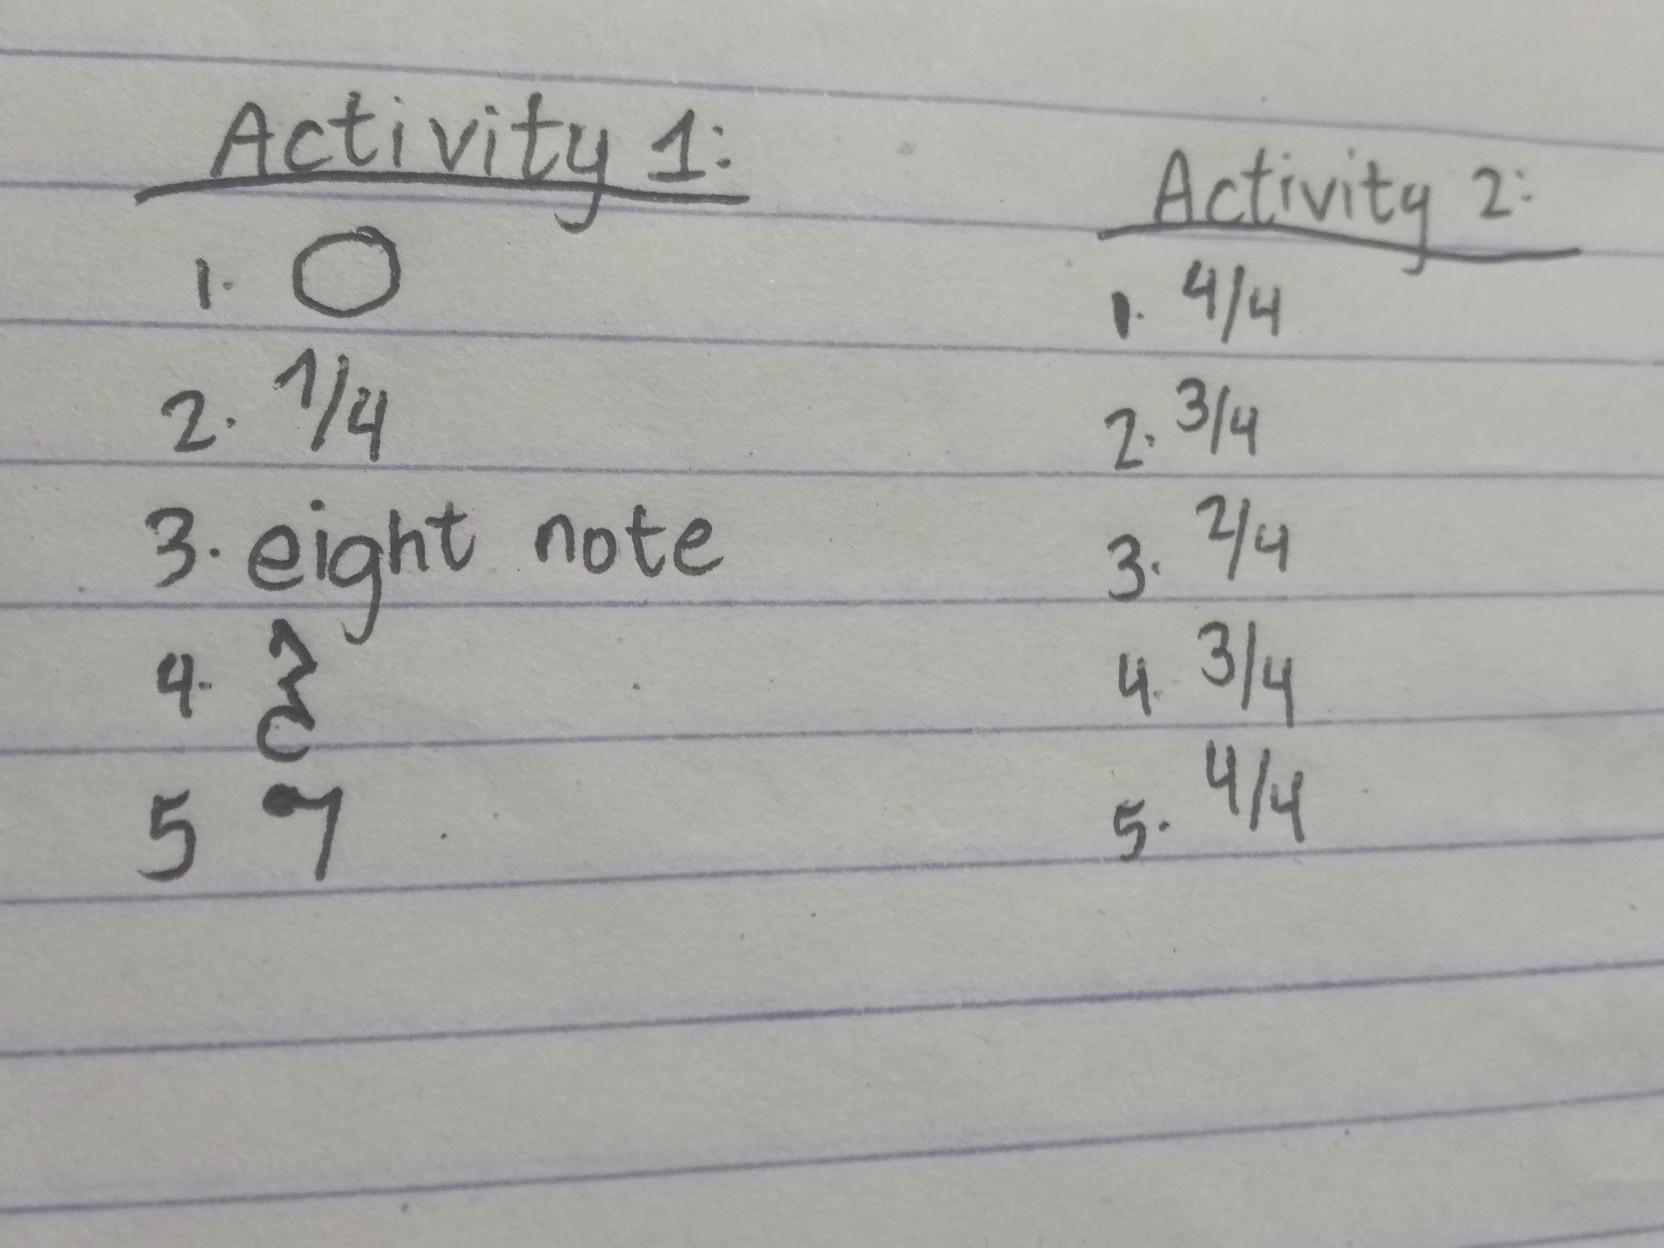 Activity 1:
1. 𝅝
2. 1/4
3. eight note
4. 𝄽
5 𝄾
Activity 2:
1. 4/4
2. 3/4
3. 2/4
4. 3/4
5. 4/4